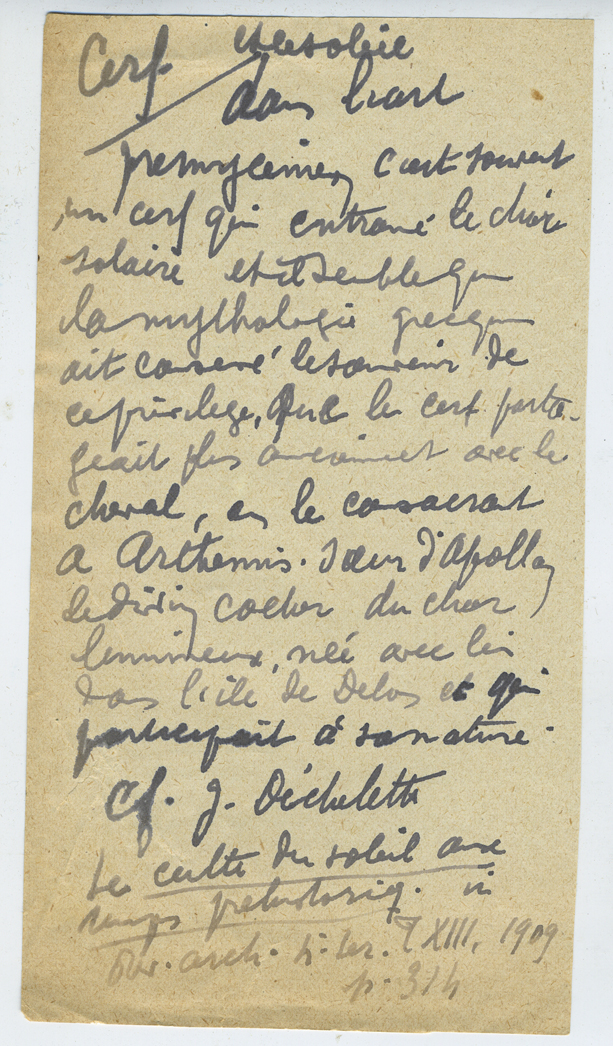 Cerf et le soleil
dans l'art
premycenien c'est souvent
un cerf qui entraine le char
solaire et il semble que
la mythologie grecque
ait conservé le souvenir de
ce privilege, que le cerf parta-
geait plus anciennement avec le
cheval, en le consacrant
a Arthemis. sœur d'Apollon
le divin cocher du char
lumineux, née avec lui
dans l'ile de Delos et qui
participait à sa nature.
Cf. J. Déchelette
Le culte du soleil aux
temps prehistoriq. in
Rev. arch. 4e Ser. T XIII, 1909
p. 314